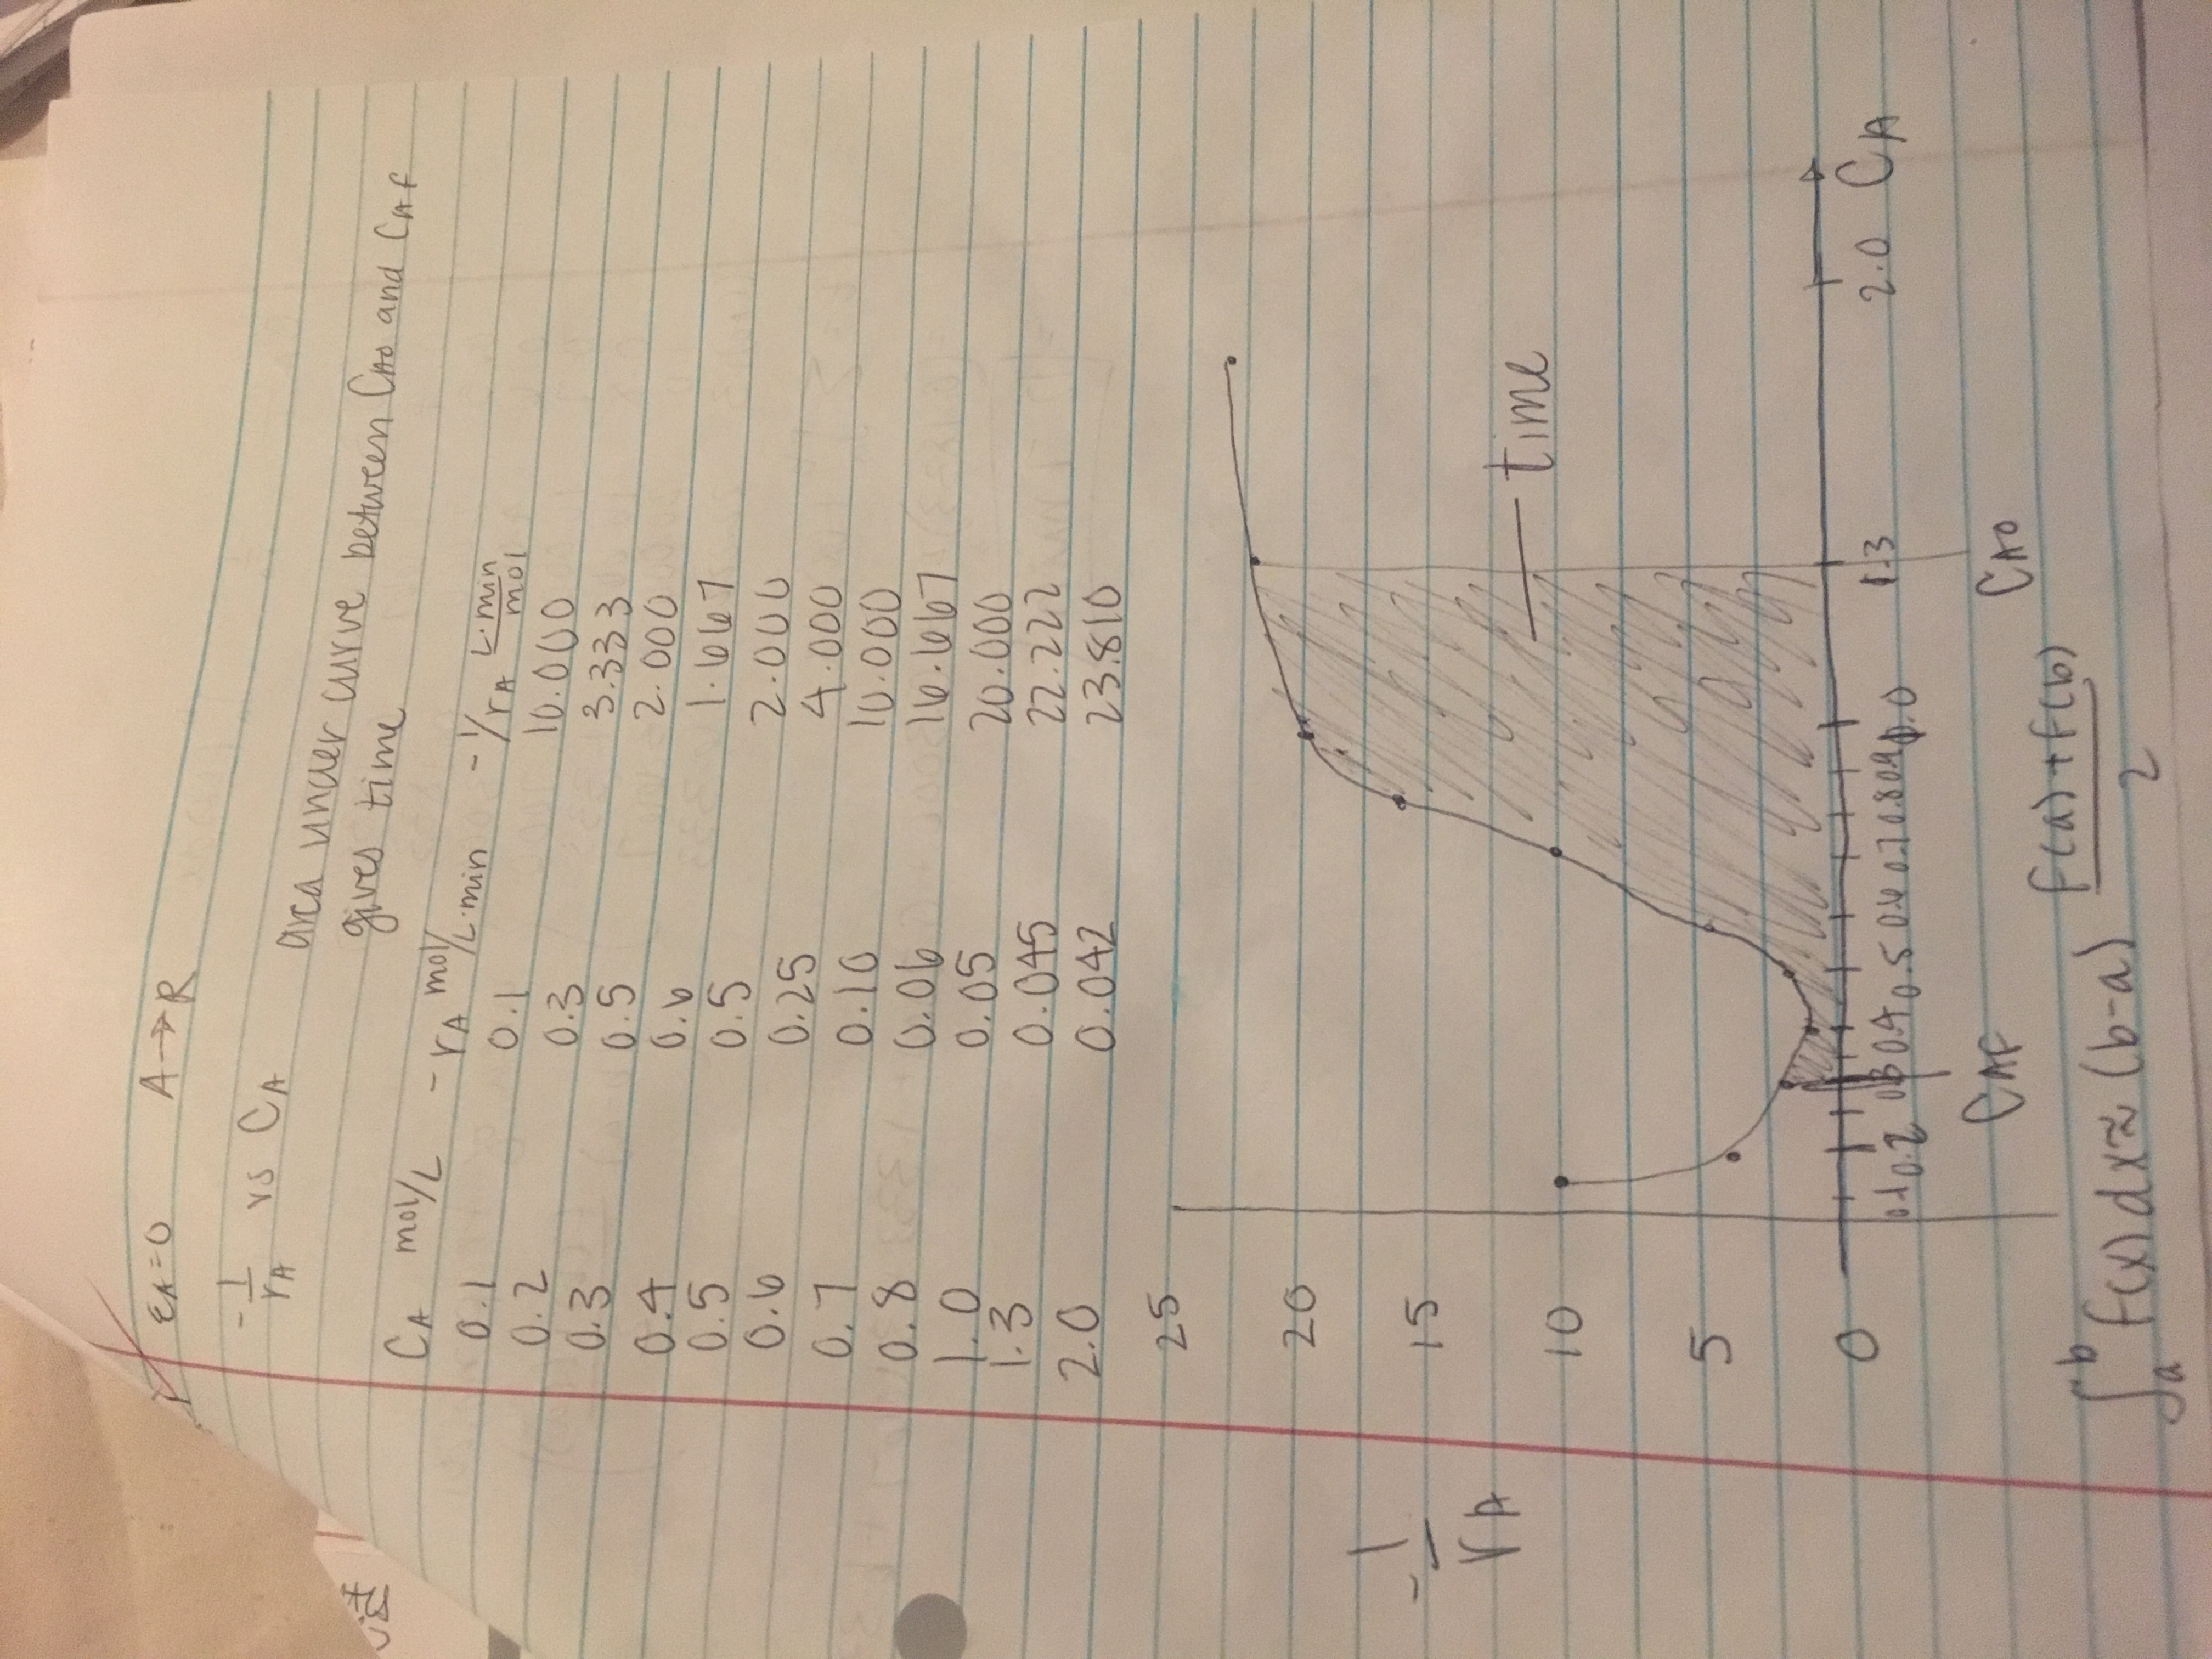 εA=0 A→R
-1/rA vs CA
area under curve between CAO and CAF
gives time
CA mol/L -rA mol/L·min -1/rA L·min/mol
0.1 0.1 10.000
0.2 0.3 3.333
0.3 0.5 2.000
0.4 0.6 1.667
0.5 0.5 2.000
0.6 0.25 4.000
0.7 0.10 10.000
0.8 0.06 16.667
1.0 0.05 20.000
1.3 0.045 22.222
2.0 0.042 23.810
25
20
-1/rA
15
time
10
5
0
0.1 0.2 0.3 0.4 0.5 0.6 0.7 0.8 0.9 1.0 1.3 2.0 CA
CAF CAO
∫ₐᵇ f(x)dx≈(b-a) f(a)+f(b)/2